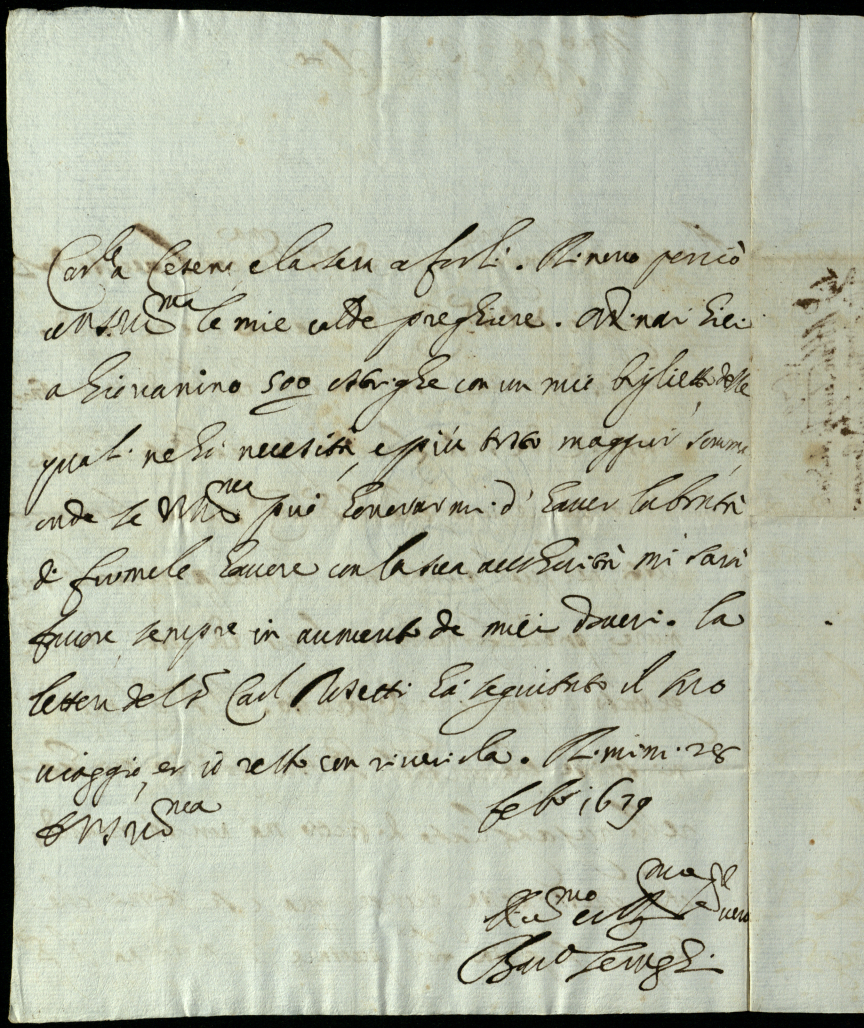 Cesena, e la sera a forlì. Rinovo perciò
a V.S. Ill.ma le mie calde preghiere. Ordinai hieri
a Giovanino 500 con un mio biglietto delle
quali ne hà necessità, e più tosto maggior somma,
onde se V.S. Ill.ma può honorarmi d'haver la bontà
di farmele havere con la sua auttorità mi sarà
favore sempre in aumento de miei doveri. La
lettera del S.r Card. Rosetti hà seguitato il suo
viaggio, et io resto con riverirla. Rimini 28
feb.o 1679
D V.S. Ill.ma